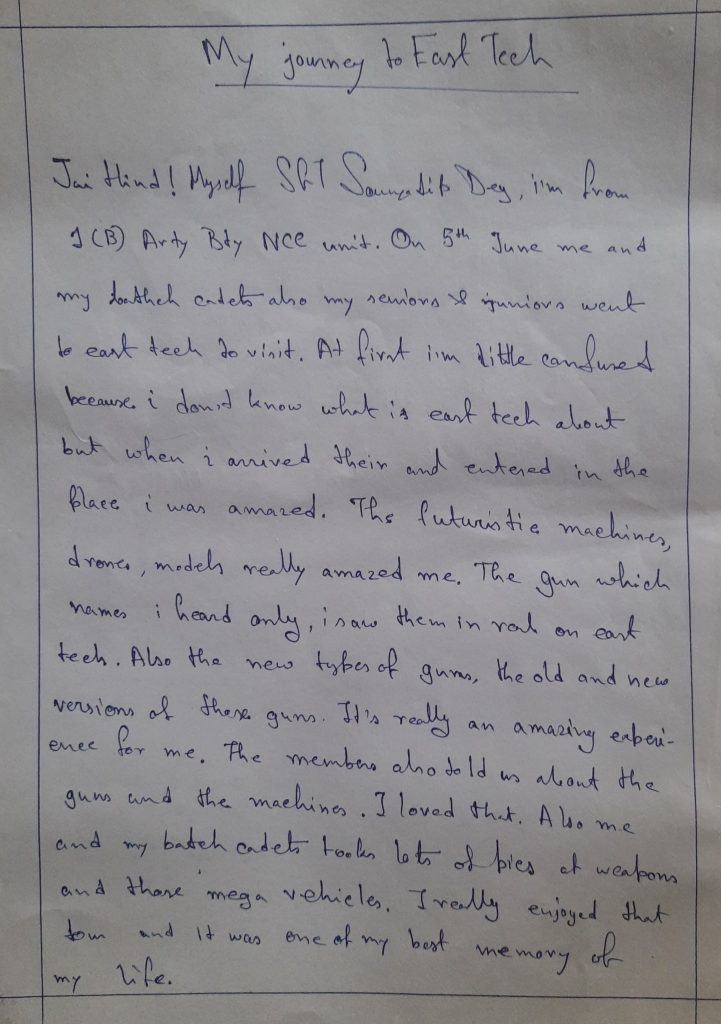 My journey to East Tech
Jai Hind! Myself SGT Soumyadip Dey, i'm from
1 (B) Arty Bty NCC unit. On 5th June me and
my cadets also my seniors & juniors went
to east tech to visit. At first i'm little confused
because i don't know what is east tech about
but when i arrived their and entered in the
place i was amazed. The futuristic machines,
drones, models really amazed me. The gun which
names i heard only, i saw them in real on east
tech. Also the new types of guns, the old and new
versions of these guns. It's really an amazing experi-
ence for me. The members also told us about the
guns and the machines. I loved that. Also me
and my batch cadets tooks lots of pics of weapons
and those mega vehicles. I really enjoyed that
tour and it was one of my best memory of
my life.